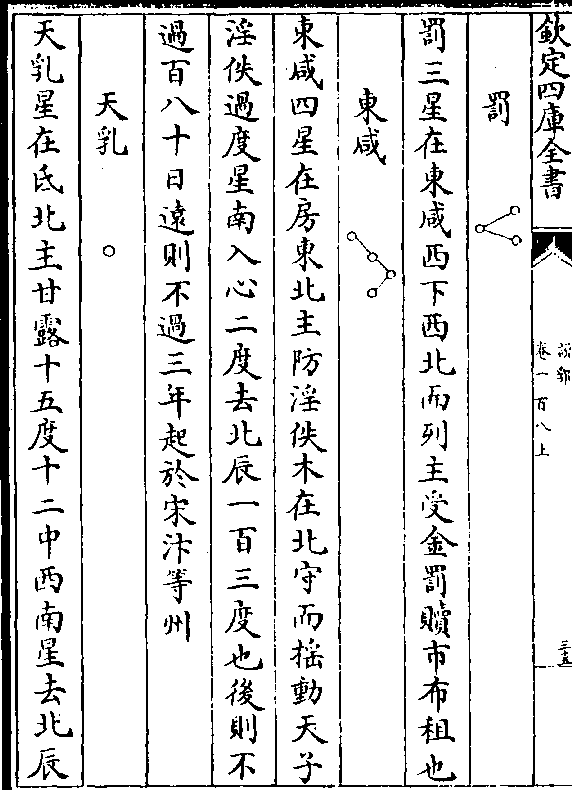 欽定四庫全書
說郛
卷一百八上
三五
罰
罰三星在東咸西下西北而列主受金罰贖市布租也
東咸
東咸四星在房東北主防淫佚木在北守而揺動天子
淫佚過度星南入心二度去北辰一百三度也後則不
過百八十日遠則不過三年起於宋汴等州
天乳
天乳星在氐北主甘露十五度十二中西南星去北辰